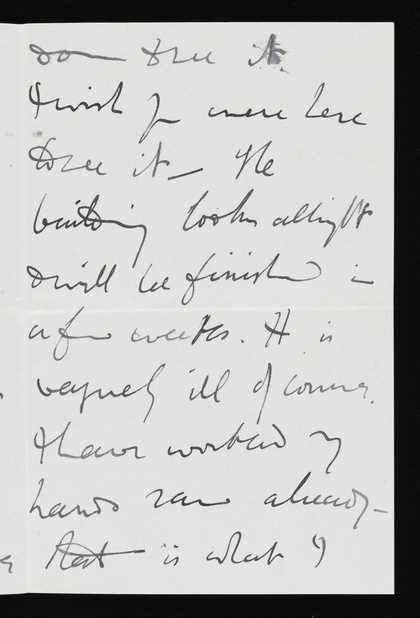 to see it.
I wish you were here
to see it – The
building looks allright
& will be finished in
a few weeks. H is
vaguely ill of course.
I have worked my
hands raw already –
that is what I